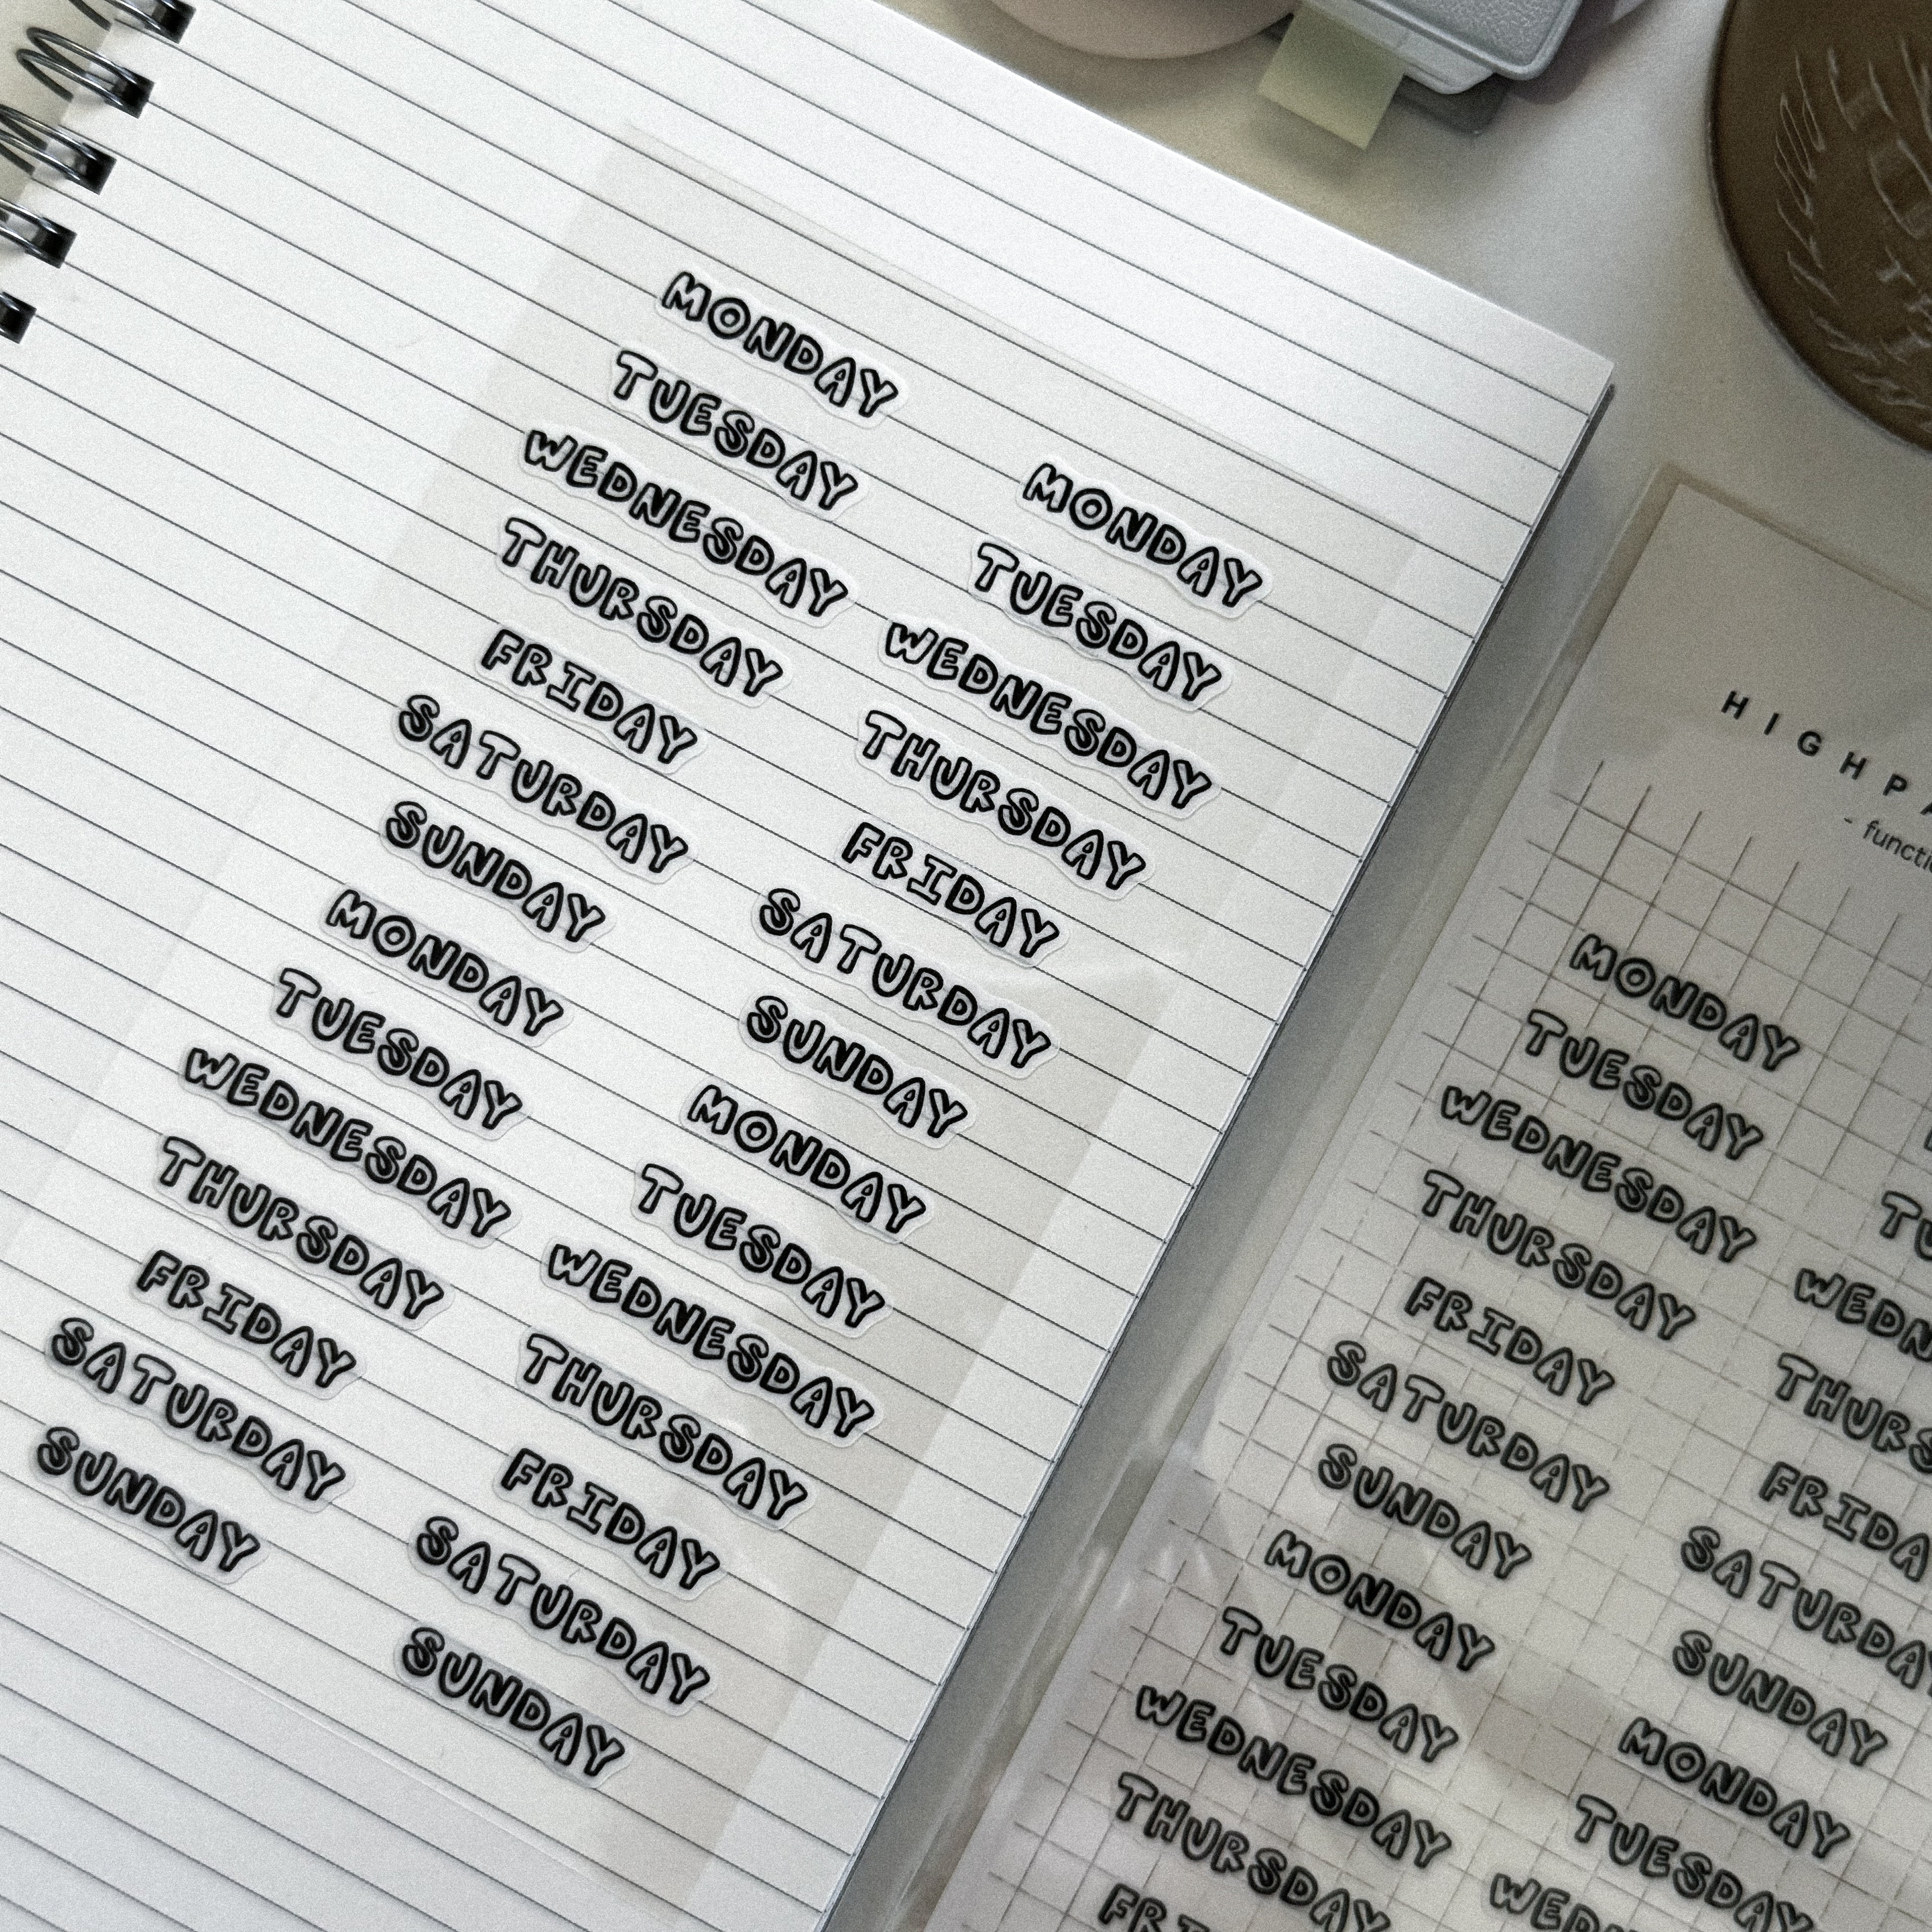 MONDAY
TUESDAY
WEDNESDAY
THURSDAY
FRIDAY
SATURDAY
SUNDAY
MONDAY
TUESDAY
WEDNESDAY
THURSDAY
FRIDAY
SATURDAY
SUNDAY
MONDAY
TUESDAY
WEDNESDAY
THURSDAY
FRIDAY
SATURDAY
SUNDAY
MONDAY
TUESDAY
WEDNESDAY
THURSDAY
FRIDAY
SATURDAY
SUNDAY
MONDAY
TUESDAY
WEDNESDAY
THURSDAY
FRIDAY
SATURDAY
SUNDAY
MONDAY
TUESDAY
WEDNESDAY
THURSDAY
SATURDAY
SUNDAY
MONDAY
TUESDAY